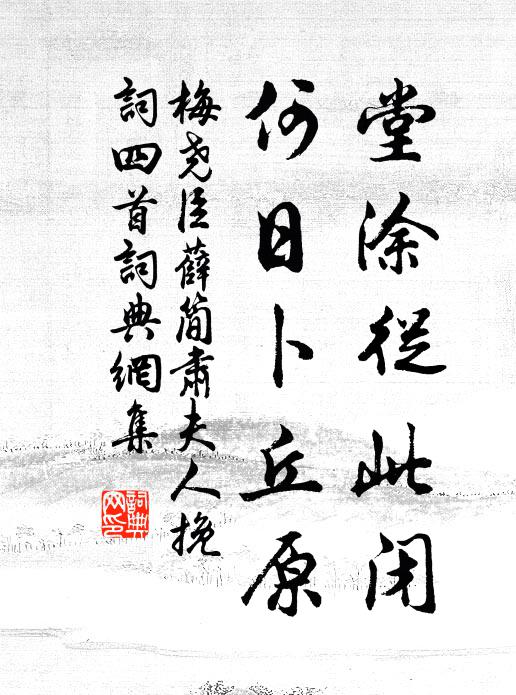 堂涂從此闭
何日卜丘原
梅尧臣薛简肅夫人挽
詞四首詞典網集
詞典
网印